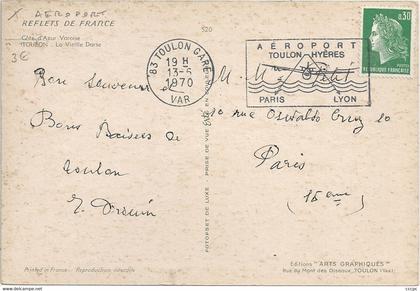 AÉROPORT
REFLETS DE FRANCE
Côte d'Azur Varoise
TOULON - La Vieille Darse
3€
520
83 TOULON GARE
19 H
13-6
1970
VAR
AÉROPORT
TOULON-HYÈRES
PARIS LYON
0,30
RÉPUBLIQUE FRANÇAISE
POSTES
Bon Souvenir et
Bons Baisers de
Toulon
M. M
10 rue Oswaldo Cruz 10
Paris
(16 eme)
FOTOPSET DE LUXE - PRISE DE VUE
Printed in France - Reproduction interdite
Editions "ARTS GRAPHIQUES"
Rue du Mont des Oiseaux, TOULON (Var)